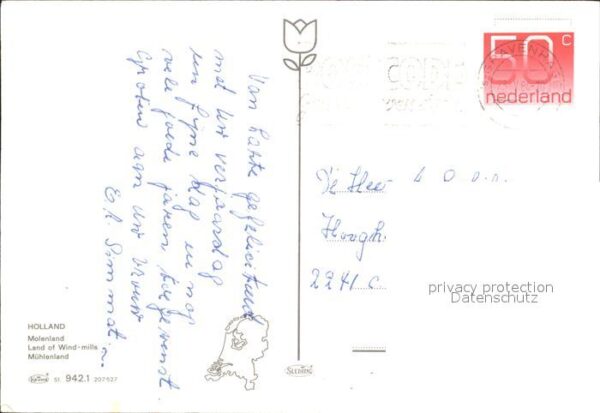 Van harte gefeliciteerd
met Uw verjaardag
een fijne dag en nog
vele goede jaren toegewenst
Groeten aan Uw vrouw
50 c
nederland
De Heer
Hoogh
2241 C
privacy protection
Datenschutz
HOLLAND
Molenland
Land of Wind-mills
Mühlenland
51 942.1 207527